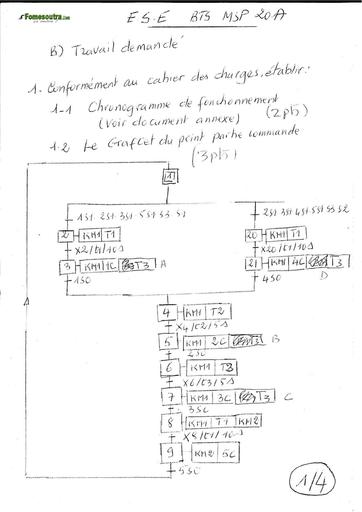 Fomesoutra.com
E S.E BTS MSP 20A
B) Travail demandé
1. Conformément au cahier des charges, établir :
1-1 Chronogramme de fonctionnement
(Voir document annexe) (2pts)
1.2 Le Grafcet du point partie commande
(3pts)
1
1S1 2S1 3S1 5S1 S3 S1
2S1 3S1 4S1 5S1 S3 S2
2 KM1 T1
20 KM1 T1
X2/t1/10s
X20/t1/10s
3 KM1 1C T3 A
21 KM1 4C T3
1S0
4S0 D
4 KM1 T2
X4/t2/5s
5 KM1 2C B
2S0
6 KM1 T3
X6/t3/5s
7 KM1 3C C
3S0
8 KM1 T1 KM2
X8/t1/10s
9 KM2 5C
5S0
1/4